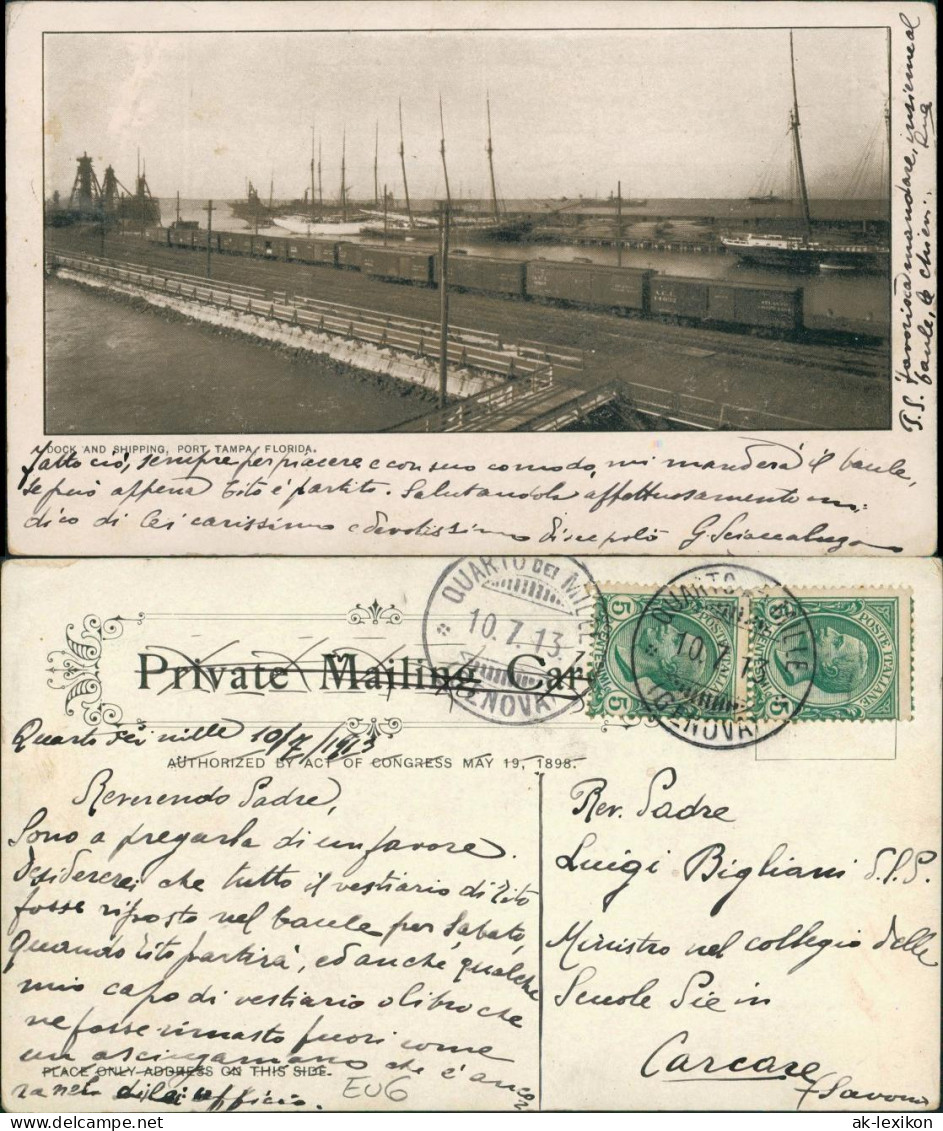 P.S. Favorisca mandare, insieme al
baule, le chiavi.
DOCK AND SHIPPING, PORT TAMPA, FLORIDA.
Fatto ciò, sempre per piacere e con suo comodo, mi manderà il baule,
se può appena Tito è partito. Salutandola affettuosamente mi
dico di Lei carissimo e devotissimo discepolo G. Sciaccaluga
QUARTO DEI MILLE
10.7.13
(GENOVA)
QUARTO DEI MILLE
10.7.13
(GENOVA)
5 POSTE ITALIANE 5
5 POSTE ITALIANE 5
Private Mailing Card
Quarto dei mille 10/7/1913
AUTHORIZED BY ACT OF CONGRESS MAY 19, 1898.
Reverendo Padre,
Sono a pregarla di un favore.
Desidererei che tutto il vestiario di Tito
fosse riposto nel baule per Sabato,
quando Tito partirà, ed anche qualche
mio capo di vestiario o libro che
ne fosse rimasto fuori come
un asciugamano che c'è anc
PLACE ONLY ADDRESS ON THIS SIDE.
ufficio.
EU6
Rev. Padre
Luigi Bigliani d.S.P.
Ministro nel collegio delle
Scuole Pie in
Carcare
(Savona)
ak-lexikon
www.ak-lexikon.de